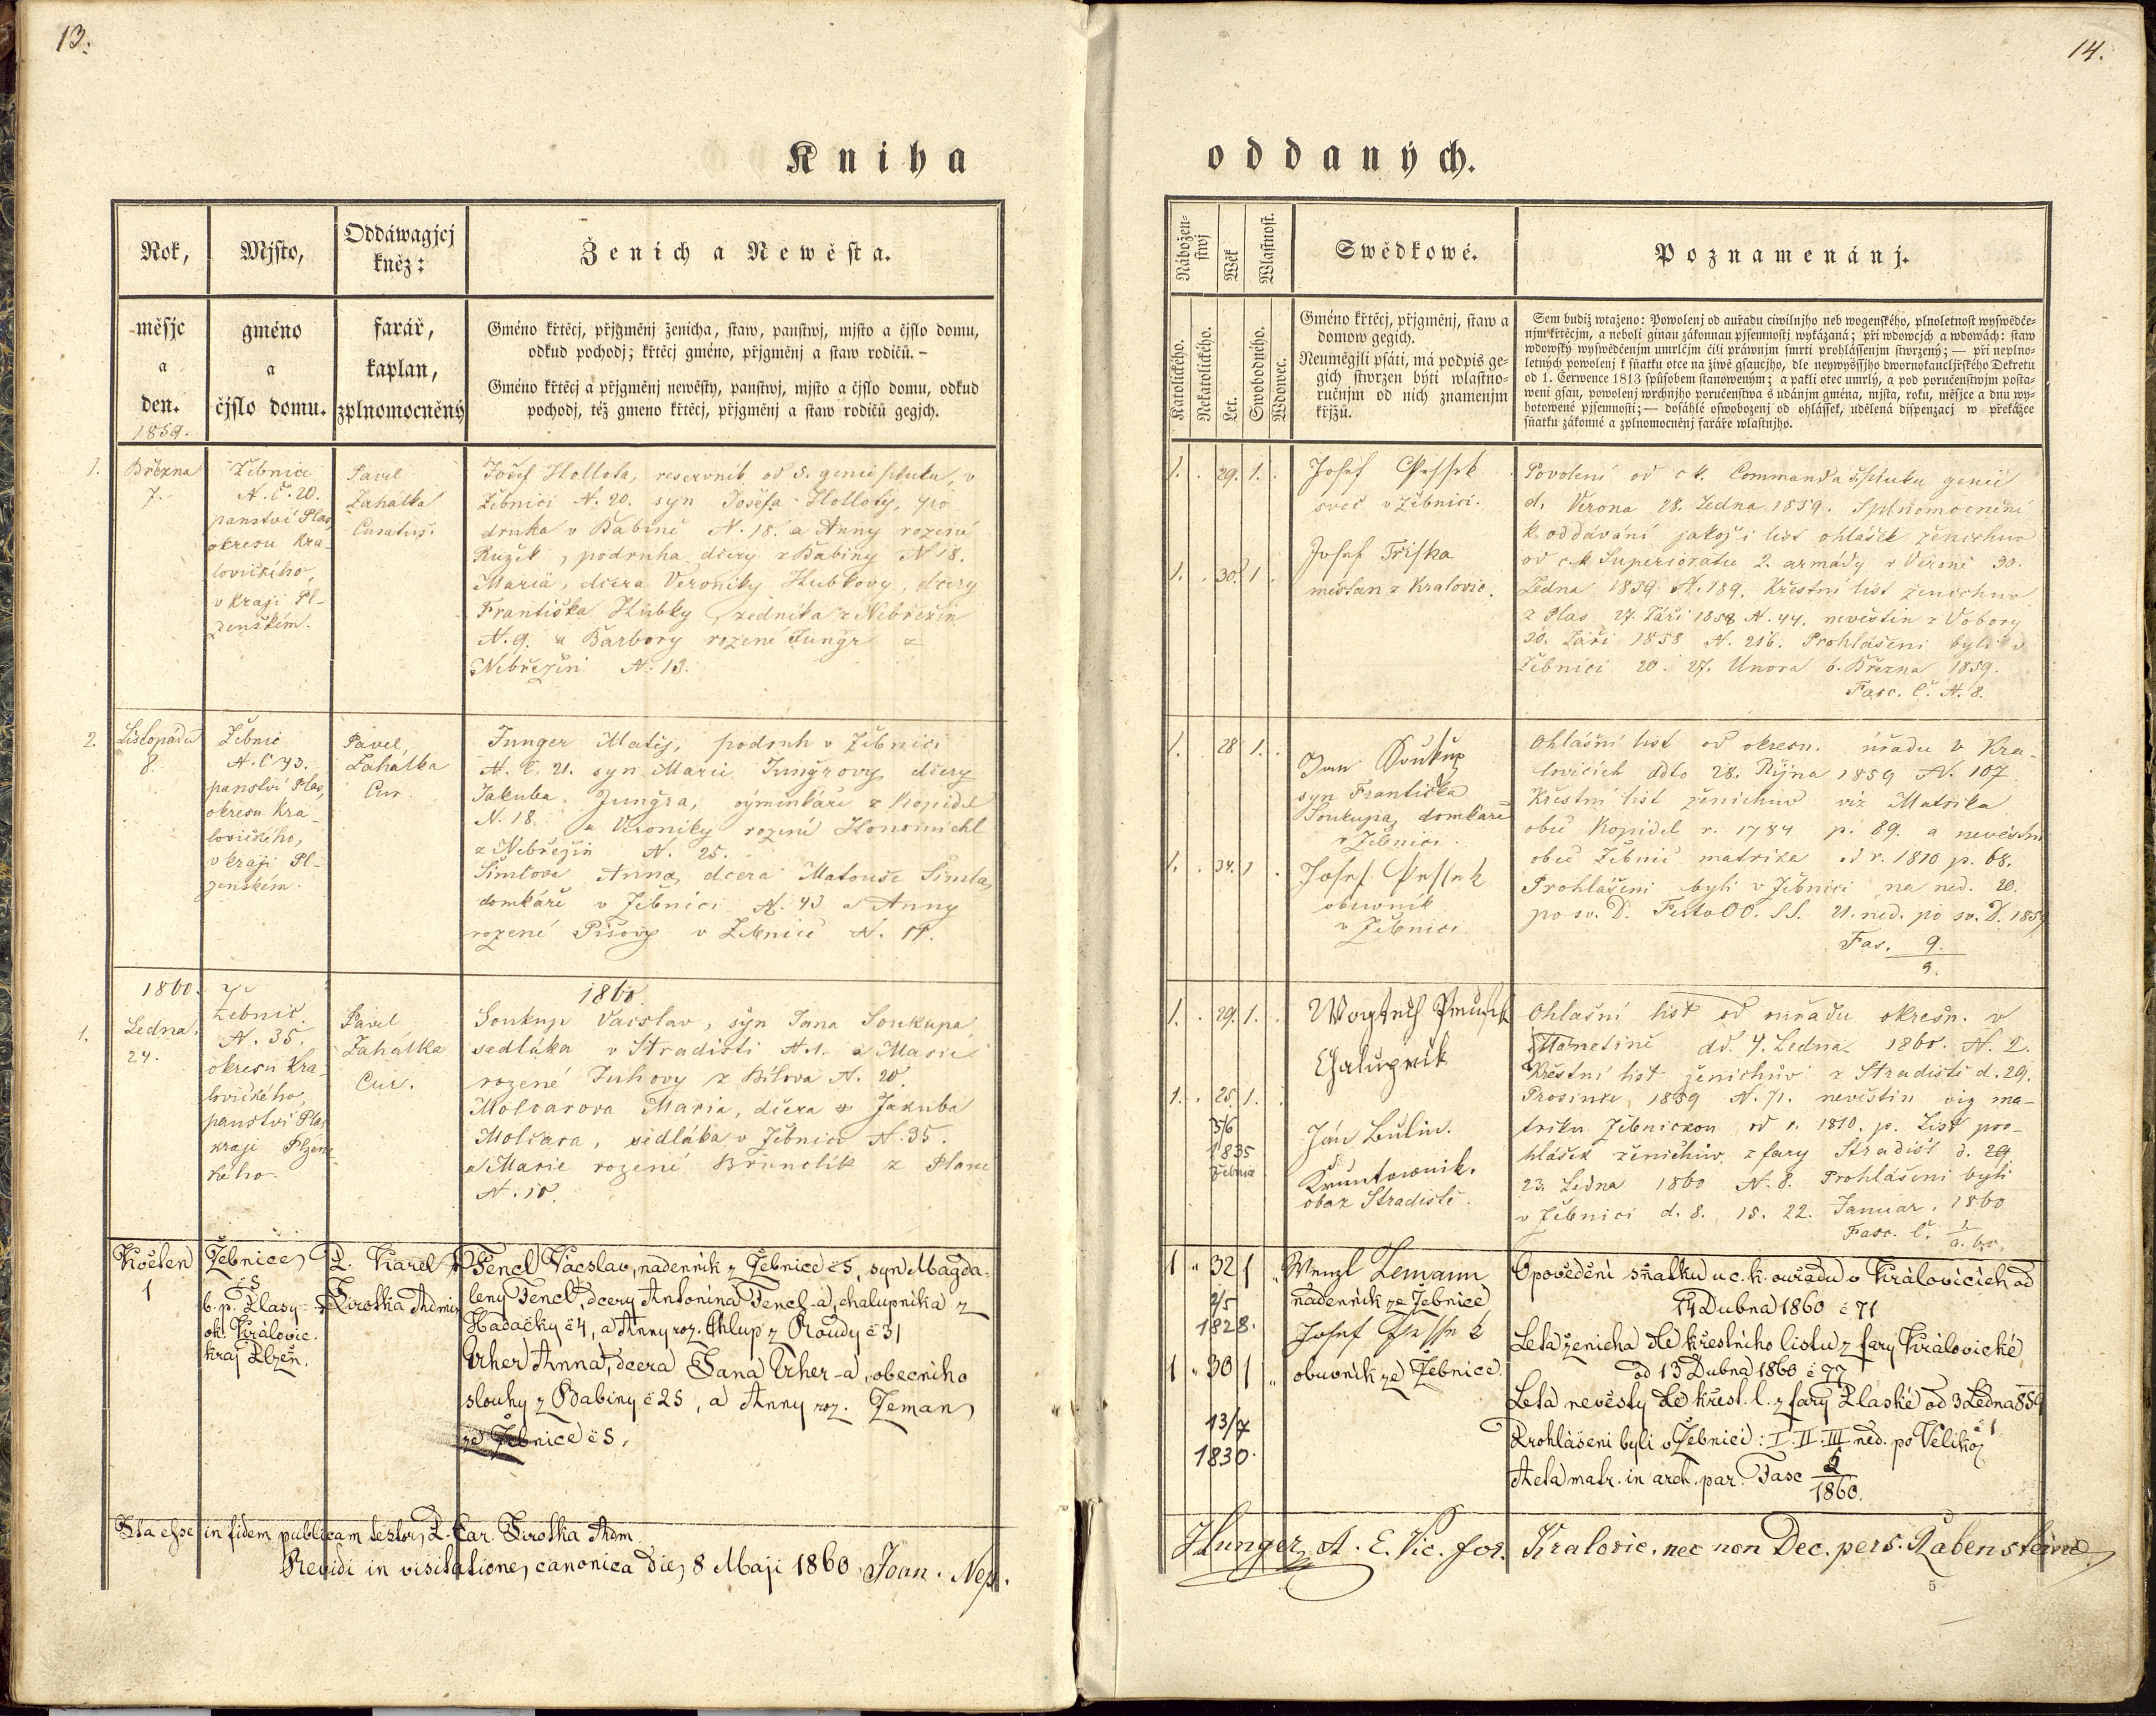 13.
Kniha
Rok,
měsjc
a
den.
1859.
Mjsto,
gméno
a
čjslo domu.
Oddáwagjcj
kněz:
farář,
kaplan,
zplnomocněný
Ženich a Newěsta.
Gméno křtěcj, přjgměnj ženicha, staw, panstwj, mjsto a čjslo domu,
odkud pochodj; křtěcj gméno, přjgměnj a staw rodičů. –
Gméno křtěcj a přjgměnj newěsty, panstwj, mjsto a čjslo domu, odkud
pochodj, též gmeno křtěcj, přjgměnj a staw rodičů gegjch.
1.
Března
7.
Žebnice
N. č. 20.
panství Plas,
okresu Kra-
lovického,
v kraji Pl-
zenském.
Pavel
Zahálka
Curatus.
Josef Hollota, reservník od 5. genie pluku, v
Žebnici N. 20. syn Josefa Holloty, po
druha v Babině N. 18. a Anny rozené
Růžek, podruha dcery z Babiny N 18.
Mariä, dcera Veroniky Hubkovy, dcery
Františka Hubky, zedníka z Nebřezin
N. 9. a Barbory rozené Jungr z
Nebřezin N. 13.
2.
Listopadu
8.
Žebnic
N. č 43.
panství Plas,
okresu Kra-
lovického,
v kraji Pl-
zenském.
Pavel
Zahálka
Cur.
Junger Matěj, podruh v Žebnici
N. č. 21. syn Marie Jungrovy, dcery
Jakuba Jungra, výminkáře z Kopidel
N. 18. a Veroniky rozené
z Nebřezin N. 25.
Šimlova Anna, dcera Matouše Šimla,
domkáře v Žebnici N. 43 a Anny
rozené Píšovy v Žebnici N. 17.
1860.
1860.
1.
Ledna
24.
Žebnic.
N. 35.
okresu Kra-
lovického,
panství Plas
kraje Plzen-
keho.
Pavel
Zahalka
Cur.
Soukup Vacslav, syn Jana Soukupa,
sedláka v Stradisti N. 1. a Marie
rozené Juhovy z Bílova N. 20.
Molcarova Maria, dcera Jakuba
Molcara, sedláka v Žebnici N. 35.
a Marie rozené Brunclík z Plane
N. 10.
Květen
1
Žebnice
č 5
b. p. Plasy
ok. Královic.
kraj Plzeň.
P. Karel
Sirotka Admin
Fencl Vácslav, nadenník z Žebnice č 5, syn Magda-
leny Fencl, dcery Antonína Fencl-a, chalupníka z
Hadačky č 4, a Anny roz. Chlup z Roudy č 31
Urher Anna, dcera Jana Urher-a, obecního
slouhy z Babiny č 25, a Anny roz. Zeman
ze Žebnice č 5.
Ita esse in fidem publicam testor, P. Car. Sirotka Adm.
Revidi in visitatione canonica die 8 Maji 1860 Joan. Nep.
14.
oddaných.
Nábožen-
stwj
Katolického.
Nekatolického.
Wěk
Let.
Wlastnost.
Swobodného.
Wdowec.
Swědkowé.
Gméno křtěcj, přjgměnj, staw a
domow gegich.
Neumějgjli psáti, má podpis ge-
gich stwrzen býti wlastno-
ručnjm od nich znamenjm
křjžů.
Poznamenánj.
Sem budiž wtaženo: Powolenj od auřadu ciwilnjho neb wogenského, plnoletnost wyswědče-
njm křtěcjm, a neboli ginau zákonnau pjsemnostj wykázaná; při wdowcjch a wdowách: staw
wdowský wyswědčenjm umrlčjm čili práwnjm smrti prohlássenjm stwrzený; — při neplno-
letných powolenj k sňatku otce na žiwě gsaucjho, dle neywyššjho dwornokancljřského Dekretu
od 1. Čerwence 1813 spůsobem stanoweným; a pakli otec umrlý, a pod poručenstwjm posta-
weni gsau, powolenj wrchnjho poručenstwa s udánjm gména, mjsta, roku, měsjce a dnu wy-
hotowené pjsemnosti; — dosáhlé oswobozenj od ohlášek, udělená dispenzacj w překážce
sňatku zákonné a zplnomocněnj faráře wlastnjho.
1. . 29. 1. .
1. . 30. 1 .
Josef
svec v Žebnici.
Josef Tříska
měšťan z Kralovic.
Povolení od c k. Commanda 5. pluku genii
d. Verona 28. Ledna 1859. Splnomocnění
k oddávání jakož i list ohlášek ženichuv
od c. k Superiorátu 2. armády v Veroně 30.
Ledna 1859 N. 189. Křestní list ženichuv
z Plas 27. Září 1858 N. 44. nevěstin z Vobory
30. Září 1858 N. 216. Prohlášeni byli v
Žebnici 20. 27. Února 6. Března 1859.
Fasc. č. N. 8.
1. . 28 1. .
1. . 34. 1 .
Jan Soukup
syn Františka
Soukupa, domkáře
v Žebnici.
Josef
obuvník
v Žebnici
Ohlašní list od okresn. úřadu v Kra-
lovicích ddto 28. Října 1859 N. 107
Křestní list ženichův viz Matrika
obec Kopidel r. 1784 p. 89. a nevěstin
obec Žebnic matrika od r. 1810 p. 68.
Prohlášeni byli v Žebnici na ned. 20.
po sv. D. Festo OO. SS. 21. ned. po sv. D. 1859
Fas. 9.
9.
1. . 29. 1. .
1. . 25. 1. .
5/6
1835
Žebnic
Chalupník
Ján Bulín.
Kruntovník.
obaz Stradiště.
Ohlašní list od ouřadu okresn. v
Manetině dd. 4. Ledna 1860. N. 2.
Křestní list ženichův z Stradiště d. 29.
Prosince 1859 N. 71. nevěstin viz ma-
triku Žebnickou od r. 1810. p. List pro-
hlášek ženichův z fary Stradišt d. 29
23. Ledna 1860 N. 8. Prohlášeni byli
v Žebnici d. 8. 15. 22. Januar. 1860
Fasc. č.
1 " 32 1 "
2/5
1828.
1 " 30 1 "
13/7
1830.
Wenzl Zemann
nadenník ze Žebnice
Josef
obuvník ze Žebnice.
Opovědění sňatku u c. k. ouřadu v Královicích od
14 Dubna 1860 č 71
Leta ženicha dle křestního listu z fary Královické
od 13 Dubna 1860 č 77
Leta nevěsty dle křest. l. z fary Plaské od 3 Ledna 859
č 1
Prohlášeni byli v Žebnici: I. II. III ned. po Velikoz
Acta matr. in arch. par. Fasc 2
1860.
Hunger, A. E. Vic. for. Kralovic. nec non Dec. pers. Rabensteine
5